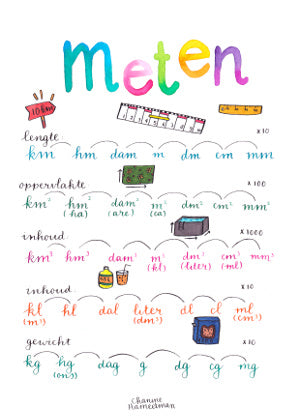 meten
10 km
lengte x10
km hm dam m dm cm mm
oppervlakte x100
km² hm² dam² m² dm² cm² mm²
(ha) (are) (ca)
inhoud x1000
km³ hm³ dam³ m³ dm³ cm³ mm³
(kl) (liter) (ml)
inhoud x10
kl hl dal liter dl cl ml
(m³) (dm³) (cm³)
gewicht x10
kg hg dag g dg cg mg
(ons)
Channe
Hamelman